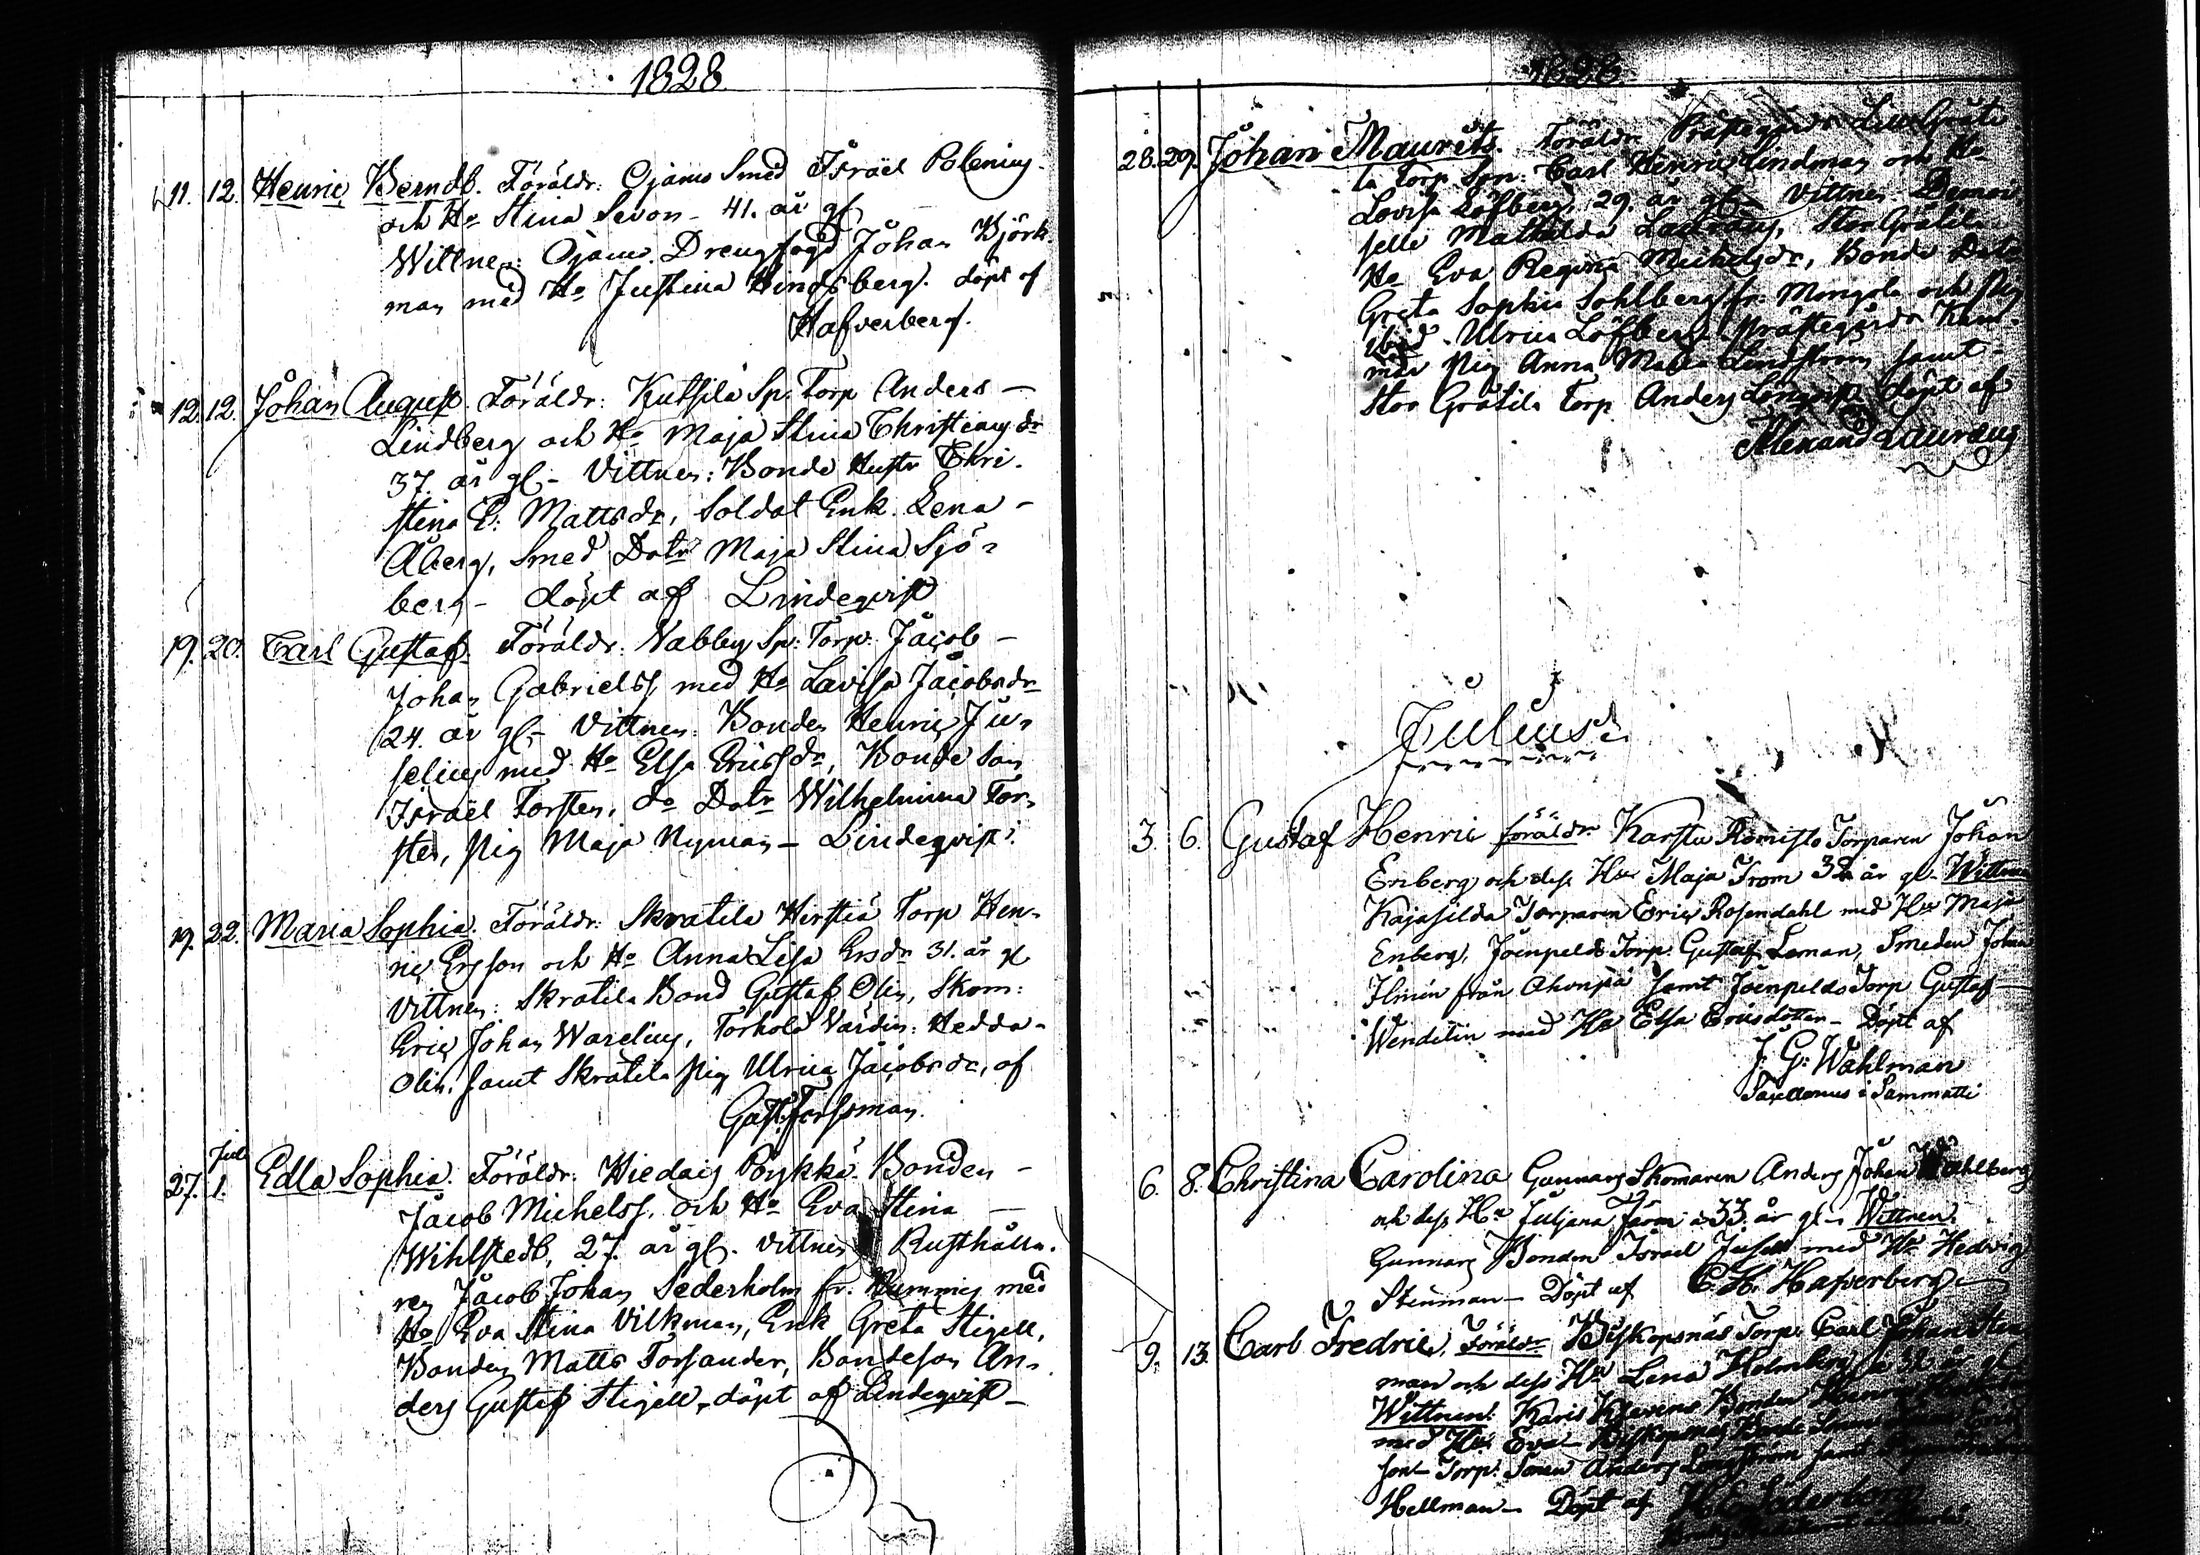 1828
11. 12. Henric Berndt. Föräldr: Ojamo Smed Israel Polenius
och Ho Stina Sevon - 41. år gl.
Wittnen: Ojamo Drengfogd Johan Björk
man med Ho Justina Hindsberg. döpt af
Hafverberg.
12. 12. Johan August. Föräldr: Kutsila Sp: Torp Anders -
Lindberg och Ho Maja Stina Christiansdr
37. år gl - Vittnen: Bonde Hustr Chri-
stina E: Mattsdr, Soldat Enk. Lena -
Åberg, Smed Dotr Maja Stina Sjö-
berg - döpt af Lindeqvist
19. 20. Carl Gustaf. Föräldr: Nabby Sp: Torp: Jacob -
Johan Gabrielss. med Ho Lovisa Jacobsdr
24. år gl - Vittnen: Bonden Henric Ju-
selius med Ho Elsa Ericsdr, Bonde Son
Israël Forsten, do Dotr Wilhelmina For-
sten, Pig Maja Nyman - Lindeqvist.
19. 22. Maria Sophia. Föräldr: Skratila Hirstiä Torp Hen-
ric Ersson och Ho Anna Lisa Ersdr 31. år gl
Vittnen: Skratila Bond Gustaf Olin, Skom:
Eric Johan Warelius, Torhola Värdin: Hedda -
Olin, samt Skratila Pig Ulrica Jacobsdr, af
Gust. Forssman.
27. Jul. 1. Edla Sophia. Föräldr: Hiedais Pöykkä Bonden -
Jacob Michelss. och Ho Eva Stina -
Wihlstedt, 27. år gl. Vittnen Rusthålla-
ren Jacob Johan Sederholm fr. Nummis med
Ho Eva Stina Vilkman, Enk Greta Stigell,
Bonden Matts Forsander, Bondeson An-
ders Gustaf Stigell, döpt af Lindeqvist -
1828.
28. 29. Johan Maurits. Föräldr: Prästegårds
Torp Carl Henric Lindman och Ho
Lovisa Löfberg, 29. år gl - Vittnen Demoi
selle Mathilda Lauræus, Stor Gråtila
Ho Eva Regina Michelsdr, Bonde Dotr
Greta Sophia Sohlberg fr: Mongola och Pig
ibid. Ulrica Löfberg, Prästegårds
Pig Anna Maria Lindström samt
Stor Gråtila Torp Anders döpt af
Alexand Lauræus
Julius
3. 6. Gustaf Henric föräldr Karstu Romisto Torparen Johan
Enberg och dess Hu Maja From 32 år gl - Wittnen
Kajasilda Torparen Eric Rosendahl med Hu Maja
Enberg, Joenpeldo Torp Gustaf Leman, Smeden Johan
Ilmén från Ahonpä samt Joenpeldo Torp Gustaf
Wendelin med Hu Elsa Ericsdotter - Döpt af
J. G. Wahlman
Sacellanus i Sammatti
6. 8. Christina Carolina Gunnars Skomaren Anders Johan Wahlberg
och dess Hu Juljana 33 år gl - Wittnen:
Gunnars Bonden Israel med Hu Hedvig
Stenman - Döpt af C. H. Hafverberg
9. 13. Carl Fredric, Föräldr Biskopsnäs Torp: Carl Johan Sten
man och dess Hu Lena Holmberg år gl
Wittnen: Karis Bonden
med Hu Eva - Biskopsnäs
Torp: Sonen Anders samt
Hellman - Döpt af